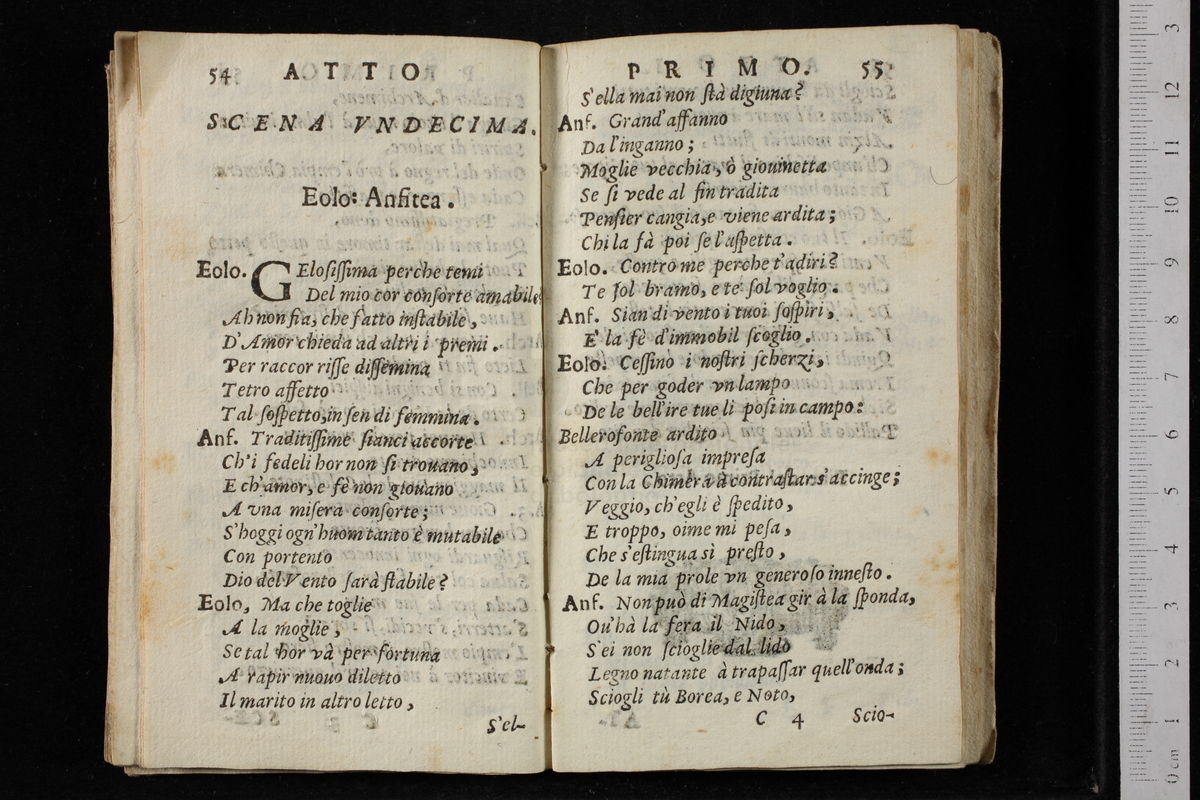 54 ATTO
SCENA VNDECIMA.
Eolo: Anfitea.
Eolo. GElosissima perche temi
Del mio cor consorte amabile?
Ah non fia, che fatto instabile,
D'Amor chieda ad altri i premi.
Per raccor risse dissemina
Tetro affetto
Tal sospetto, in sen di femmina.
Anf. Traditissime sianci accorte
Ch'i fedeli hor non si trouano,
E ch'amor, e fè non giouano
A vna misera consorte;
S'hoggi ogn'huom tanto è mutabile
Con portento
Dio del Vento sarà stabile?
Eolo, Ma che toglie
A la moglie,
Se tal hor và per fortuna
A rapir nuouo diletto
Il marito in altro letto,
S'el-
PRIMO. 55
S'ella mai non stà digiuna?
Anf. Grand'affanno
Da l'inganno;
Moglie vecchia, ò giouinetta
Se si vede al fin tradita
Pensier cangia, e viene ardita;
Chi la fà poi se l'aspetta.
Eolo. Contro me perche t'adiri?
Te sol bramo, e te sol voglio.
Anf. Sian di vento i tuoi sospiri,
E' la fè d'immobil scoglio.
Eolo. Cessino i nostri scherzi,
Che per goder vn lampo
De le bell'ire tue li posi in campo:
Bellerofonte ardito
A perigliosa impresa
Con la Chimera à contrastar s'accinge;
Veggio, ch'egli è spedito,
E troppo, oime mi pesa,
Che s'estingua sì presto,
De la mia prole vn generoso innesto.
Anf. Non può di Magistea gir à la sponda,
Ou'hà la fera il Nido,
S'ei non scioglie dal lido
Legno natante à trapassar quell'onda;
Sciogli tù Borea, e Noto,
C 4 Scio-
3
12
11
10
9
8
7
6
5
4
3
2
1
0 cm